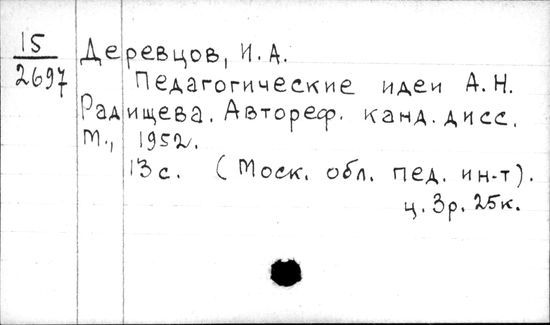 15
2697
Деревцов, И.А.
Педагогические идеи А.Н.
Радищева. Автореф. канд. дисс.
М., 1952.
13с. (Моск. обл. пед. ин-т).
ц. 3р. 25к.